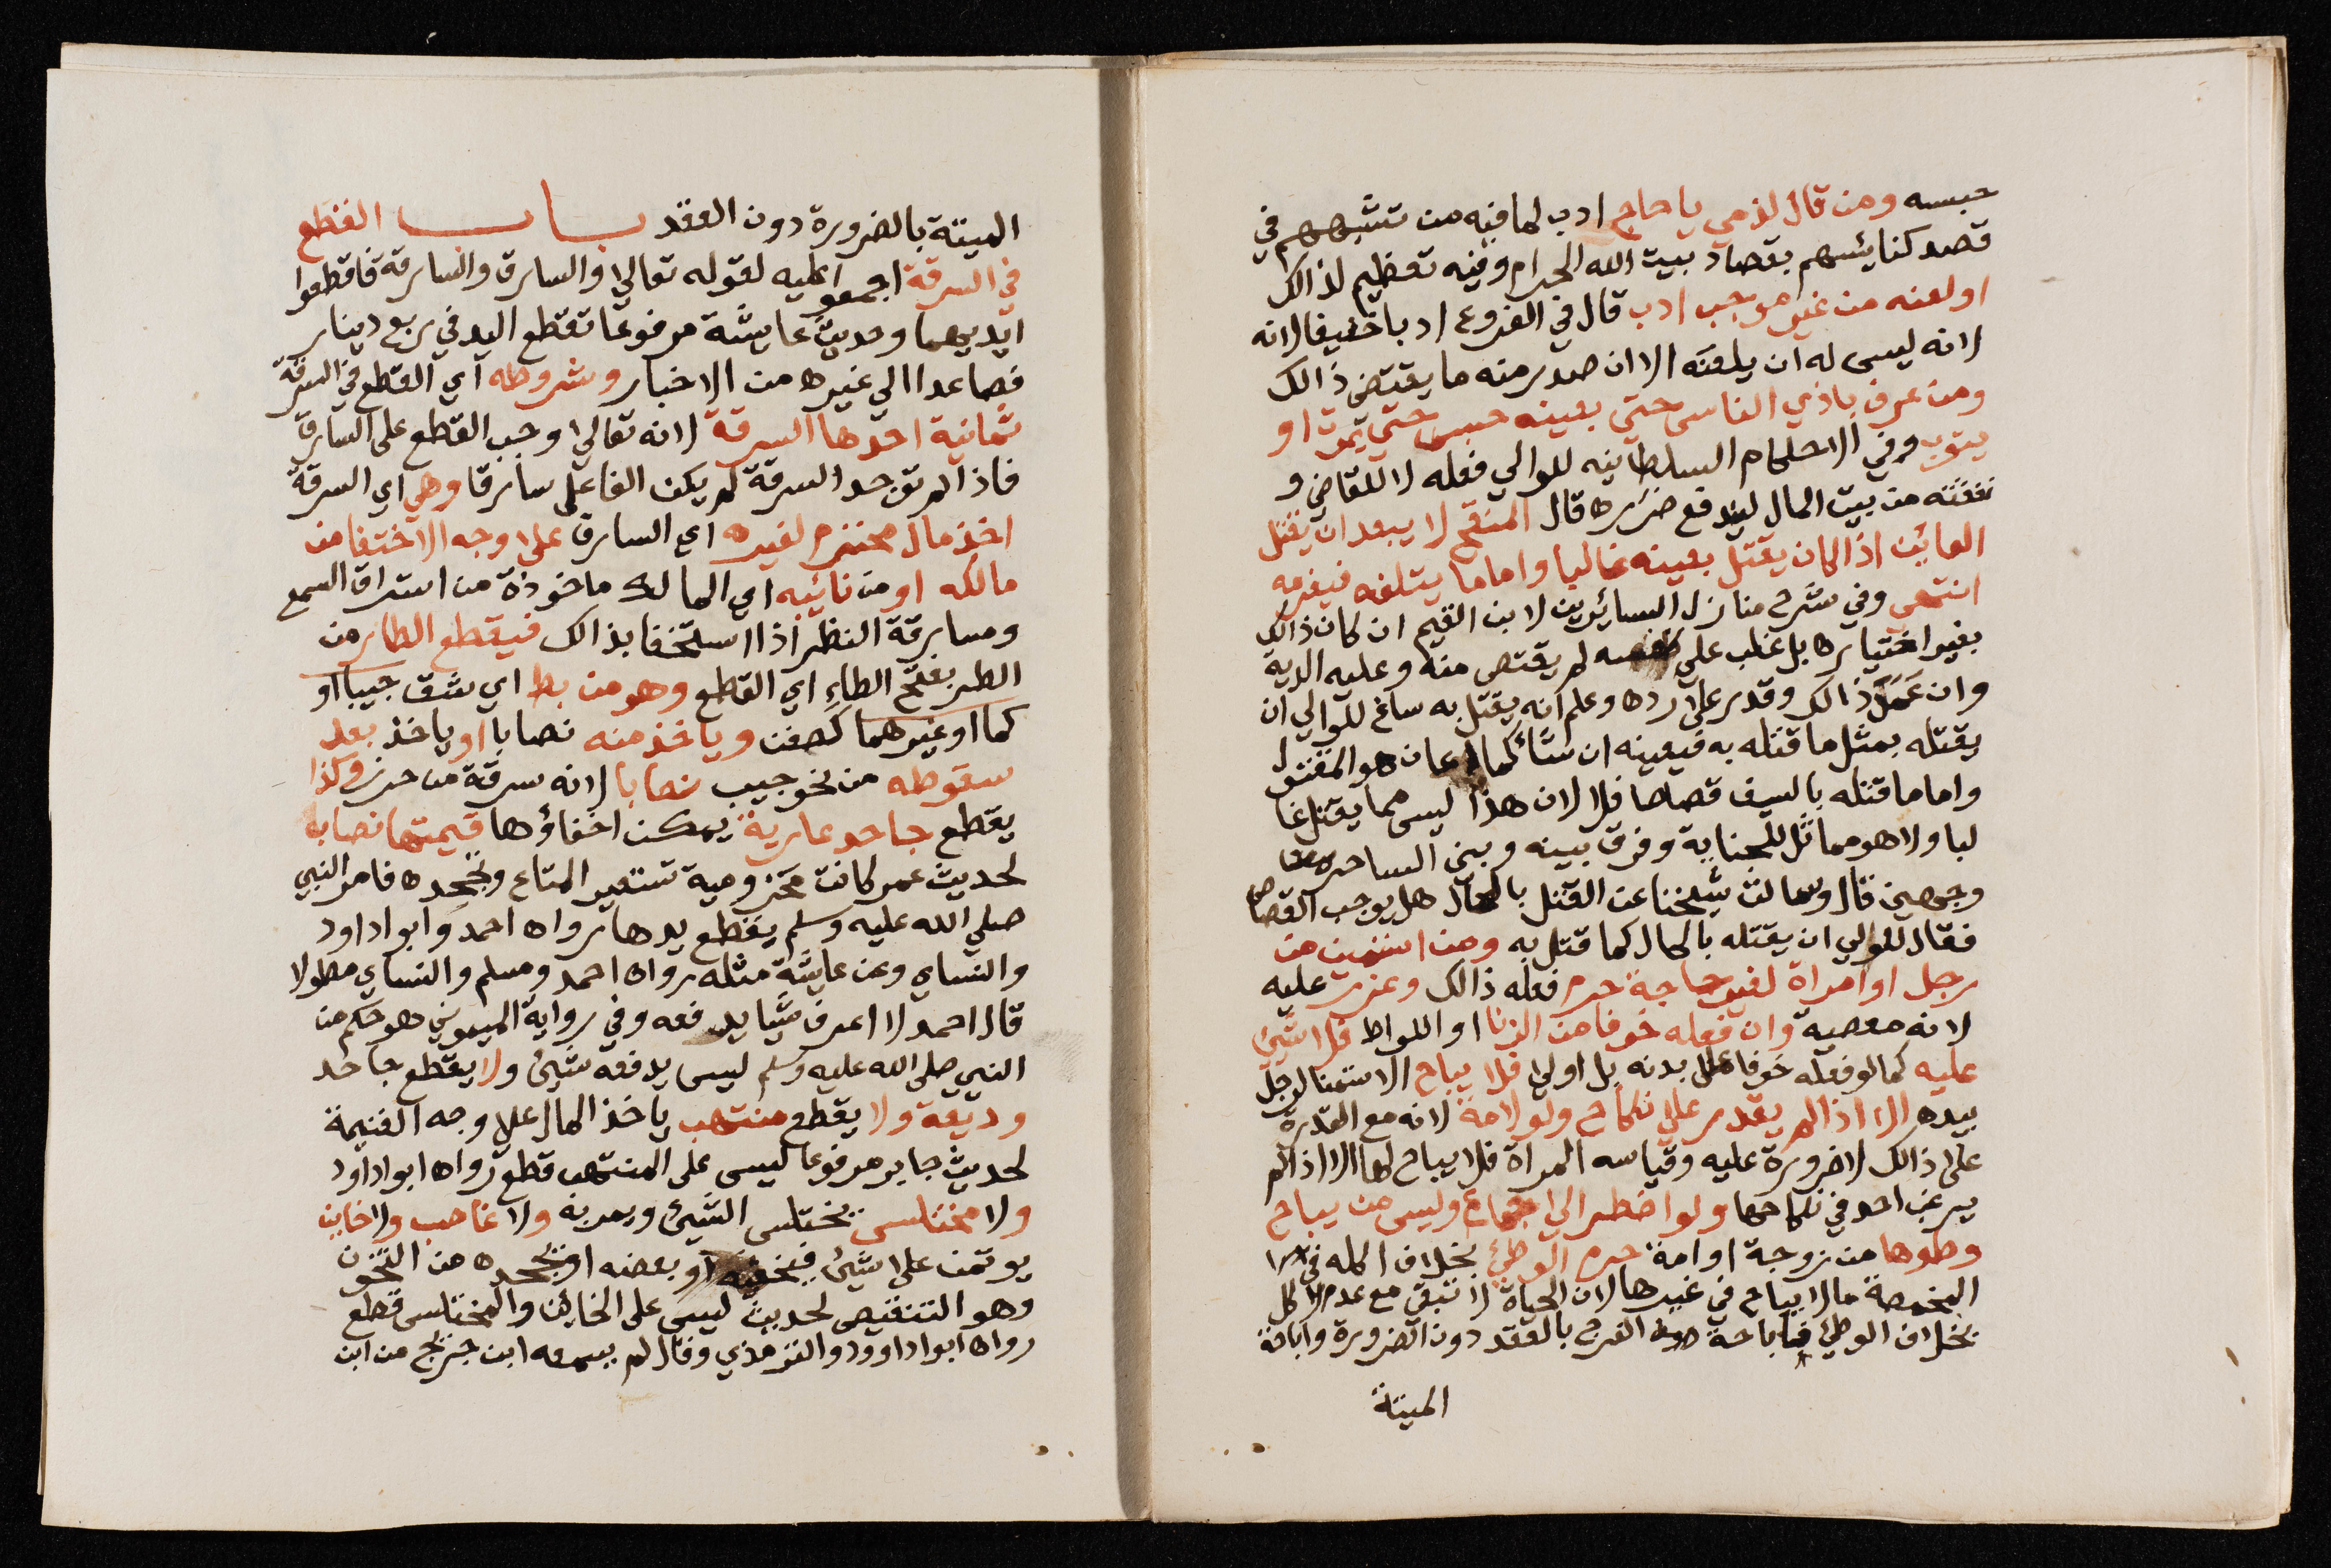 حبسه ومن قال لذمي يا حاج ادب لما فيه من تشبيههم في
قصد كنايسهم بقصاد بيت الله الحرام وفيه تعظيم لذالك
او لعنه من غير موجب ادب قال في الفروع ادبا خفيفا لانه
لانه ليس له ان يلعنه الا ان صدر منه ما يقتضي ذالك
ومن عرف باذي الناس حتي بعينه حبس حتي يموت او
يتوب وفي الاحكام السلطانيه للوالي فعله لا للقاضي و
نفقته من بيت المال ليندفع ضرره قال المنقح لا يبعد ان يقتل
العائن اذا كان يقتل بعينه غالبا واما ما يتلفه فيغرمه
انتهي وفي شرح منازل السائرين لابن القيم ان كان ذالك
بغير اختياره بل غلب علي نفسه لم يقتص منه وعليه الدية
وان عمد ذالك وقدر على رده وعلم انه يقتل به ساغ للوالي ان
يقتله بمثل ما قتله به فيعينه ان شاء كما اعان هو المقتول
واما ما قتله بالسيف قصاصا فلا لان هذا ليس مما يقتل غا
لبا ولا هو مماثل للجناية وفرق بينه وبين الساحر من
وجهين قال وسالت شيخنا عن القتل بالحال هل يوجب القصاص
فقال للوالي ان يقتله بالحال كما قتل به ومن استمني من
رجل او امراة لغير حاجة حرم فعله ذالك وعزر عليه
لانه معصية وان فعله خوفا من الزنا او اللواط فلا شيئ
عليه كما لو فعله خوفا على بدنه بل اولي فلا يباح الاستمنا لرجل
بيده الا اذا لم يقدر علي نكاح ولو لامة لانه مع القدرة
على ذالك لا ضرورة عليه وقياسه المراة فلا يباح لها الا اذا لم
يرغب احد في نكاحها ولو اضطر الي جماع وليس من يباح
وطوها من زوجة او امة حرم الوطئ بخلاف اكله في
المخمصة ما لا يباح في غيرها لان الحياة لا تبقي مع عدم الاكل
بخلاف الوطئ فاباحة الفرج بالعقد دون الضرورة واباحة
الميتة
الميتة بالضرورة دون العقد باب القطع
في السرقة اجمعو عليه لقوله تعالي والسارق والسارقة فاقطعوا
ايديهما وحديث عايشة مرفوعا تقطع اليد في ربع دينار
فصاعدا الي غيره من الاخبار وشروطه اي القطع في السرقة
ثمانية احدها السرقة لانه تعالي اوجب القطع على السارق
فاذا لم توجد السرقة لم يكن الفاعل سارقا وهي اي السرقة
اخذ مال محترم لغيره اي السارق علي وجه الاختفا من
مالكه او من نائبه اي المالك ماخوذة من استراق السمع
ومسارقة النظر اذا استخفا بذالك فيقطع الطرار من
الطر بفتح الطاء اي القطع وهو من بط اي شق جيبا او
كما او غيرهما كصفن وياخذ منه نصابا او ياخذ بعد
سقوطه من نحو جيب نصابا لانه سرقة من حرز وكذا
يقطع جاحد عارية يمكن اخفاؤها قيمتها نصابا
لحديث عمر كانت مخزومية تستعير المتاع وتجحده فامر النبي
صلي الله عليه وسلم بقطع يدها رواه احمد وابوا داود
والنساي وعن عايشة مثله رواه احمد ومسلم والنساي مطولا
قال احمد لا اعرف شيا يدفعه وفي رواية الميموني هو حكم من
النبي صلي الله عليه وسلم ليس يدفعه شيئ ولا يقطع جاحد
وديعة ولا يقطع منتهب ياخذ المال علي وجه الغنيمة
لحديث جابر مرفوعا ليس على المنتهب قطع رواه ابوا داود
ولا مختلس يختلس الشيئ ويمر به ولا غاصب ولا خاين
يوتمن علي شيئ فيخفيه او بعضه او يجحده من التخون
وهو التنقيص لحديث ليس على الخاين والمختلس قطع
رواه ابوا داوود والترمذي وقال لم يسمعه ابن جريج من ابن